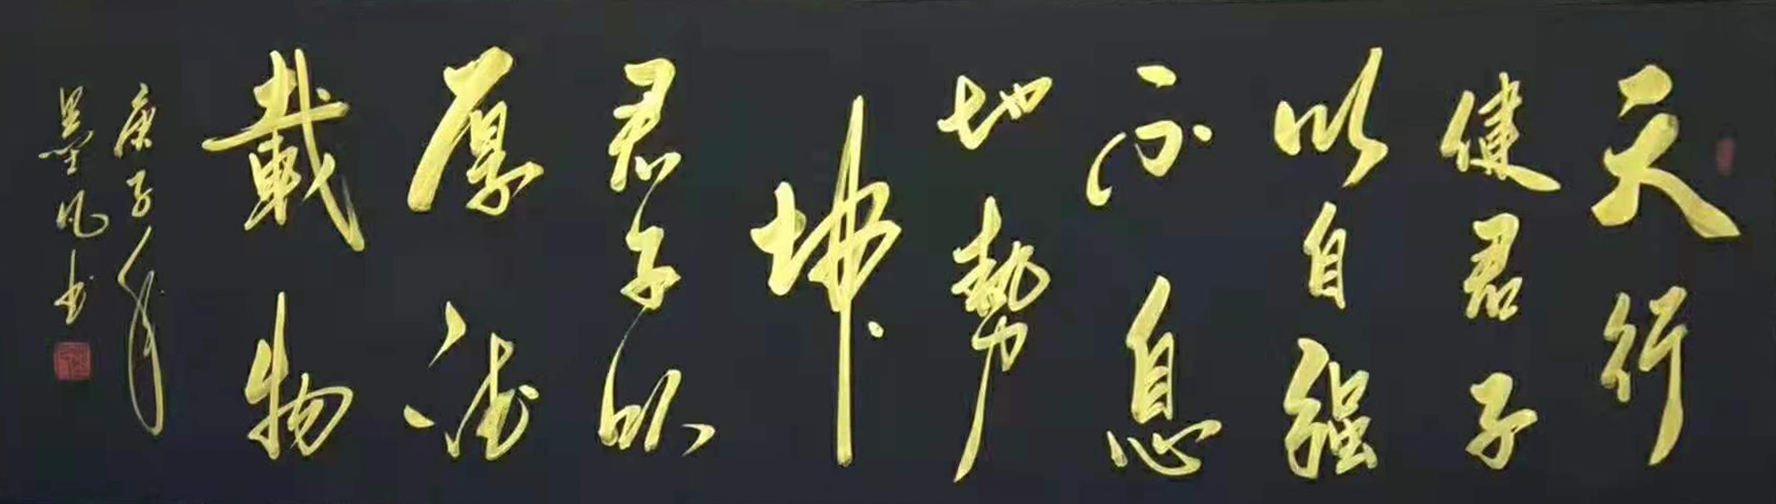 天行
健君子
以自强
不息
地勢
坤
君子以
厚德
載物
庚子年
墨凡书